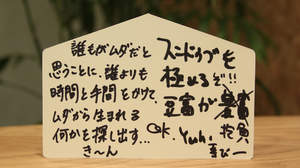 誰もがムダだと
思うことに、誰よりも
時間と手間をかけて、
ムダから生まれる
何かを探し出す…
き～ん
スンドゥブを
極めるぞ!!
豆富が
抱負
OK. Yuh.